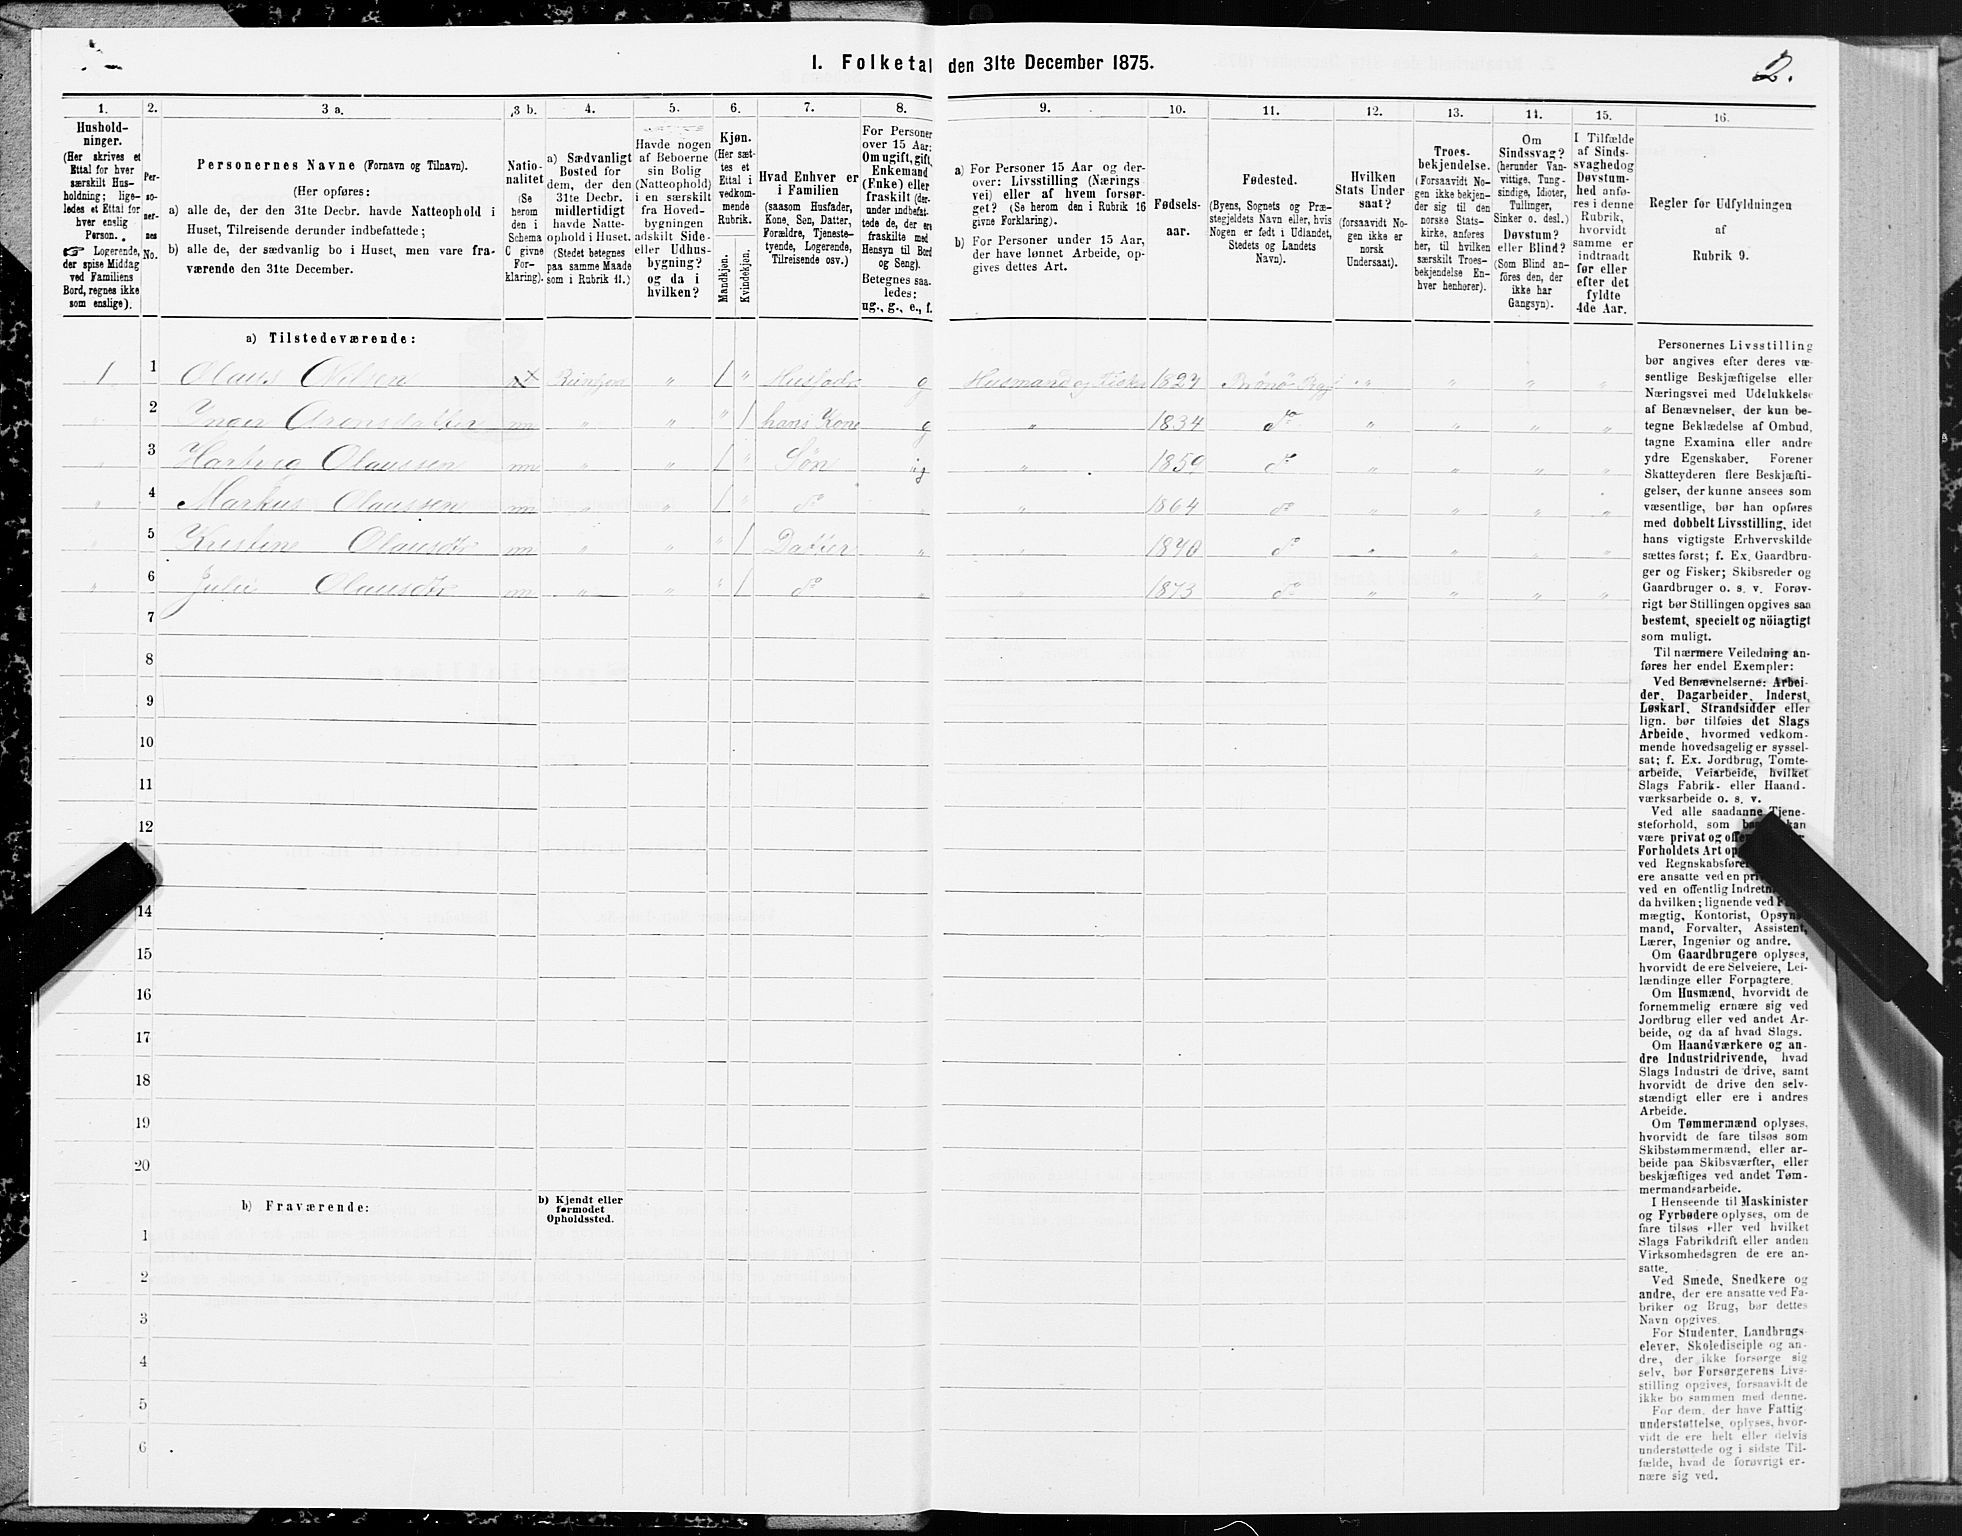 I. Folketal den 31te December 1875.
2.
1. 2. 3 a. 3 b. 4. 5. 6. 7. 8. 9. 10. 11. 12. 13. 14. 15. 16.
Hushold-
ninger.
(Her skrives et
Ettal for hver
særskilt Hus-
holdning; lige-
ledes et Ettal for
hver enslig
Person.
☞ Logerende,
der spise Middag
ved Familiens
Bord, regnes ikke
som enslige).
Per-
so-
ner-
nes
No.
Personernes Navne (Fornavn og Tilnavn).
(Her opføres:
a) alle de, der den 31te Decbr. havde Natteophold i
Huset, Tilreisende derunder indbefattede;
b) alle de, der sædvanlig bo i Huset, men vare fra-
værende den 31te December.
Natio-
nalitet
(Se
herom
den i
Schema
C givne
For-
klaring).
a) Sædvanligt
Bosted for
dem, der den
31te Decbr.
midlertidigt
havde Natte-
ophold i Huset.
(Stedet betegnes
paa samme Maade
som i Rubrik 11.)
Havde nogen
af Beboerne
sin Bolig
(Natteophold)
i en særskilt
fra Hoved-
bygningen
adskilt Side-
eller Udhus-
bygning?
og da i
hvilken?
Kjøn.
(Her sæt-
tes et
Ettal i
vedkom-
mende
Rubrik.
Mandkjøn.
Kvindekjøn.
Hvad Enhver er
i Familien
(saasom Husfader,
Kone, Søn, Datter,
Forældre, Tjeneste-
tyende, Logerende,
Tilreisende osv.)
For Personer
over 15 Aar:
Om ugift, gift,
Enkemand
(Enke) eller
fraskilt (der-
under indbefat-
tede de, der ere
fraskilte med
Hensyn til Bord
og Seng).
Betegnes saa-
ledes:
ug., g., e., f.
a) For Personer 15 Aar og der-
over: Livsstilling (Nærings
vei) eller af hvem forsør-
get? (Se herom den i Rubrik 16
givne Forklaring).
b) For Personer under 15 Aar,
der have lønnet Arbeide, op-
gives dettes Art.
Fødsels-
aar.
Fødested.
(Byens, Sognets og Præ-
stegjeldets Navn eller, hvis
Nogen er født i Udlandet,
Stedets og Landets
Navn).
Hvilken
Stats Under
saat?
(forsaavidt No-
gen ikke er
norsk
Undersaat).
Troes-
bekjendelse.
(Forsaavidt No-
gen ikke bekjen-
der sig til den
norske Stats-
kirke, anføres
her, til hvilken
særskilt Troes-
bekjendelse En-
hver henhører).
Om
Sindssvag?
(herunder Van-
vittige, Tung-
sindige, Idioter,
Tullinger,
Sinker o. desl.)
Døvstum?
eller Blind?
(Som Blind an-
føres den, der
ikke har
Gangsyn).
I Tilfælde
af Sinds-
svaghed og
Døvstum-
hed anfø-
res i denne
Rubrik,
hvorvidt
samme er
indtraadt
før eller
efter det
fyldte
4de Aar.
Regler for Udfyldningen
af
Rubrik 9.
a) Tilstedeværende:
1 1 Olaus Nilsen " / " Husfader g Husmand og Fisker 1827 " " " "
2 Inger Arensdatter nn " " " / hans Kone g " 1834 do " " " "
3 Hartvig Olaussen nn " " / " Søn ug " 1859 do " " " "
" 4 Markus Olaussen nn " " / " do " " 1864 do " " " "
" 5 Kristine Olausdtr nn " " " / Datter " " 1870 do " " " "
" 6 Julie Olausdtr nn " " " / do " " 1873 do " " " "
7
8
9
10
11
12
14
15
16
17
18
19
20
b) Fraværende:
b) Kjendt eller
formodet
Opholdssted.
1
2
3
4
5
6
Personernes Livsstilling
bør angives efter deres væ-
sentlige Beskjæftigelse eller
Næringsvei med Udelukkelse
af Benævnelser, der kun be-
tegne Beklædelse af Ombud,
tagne Examina eller andre
ydre Egenskaber. Forener
Skatteyderen flere Beskjæfti-
gelser, der kunne ansees som
væsentlige, bør han opføres
med dobbelt Livsstilling, idet
hans vigtigste Erhvervskilde
sættes først; f. Ex. Gaardbru-
ger og Fisker; Skibsreder og
Gaardbruger o. s. v. Forøv-
rigt bør Stillingen opgives saa
bestemt, specielt og nöiagtigt
som muligt.
Til nærmere Veiledning an-
føres her endel Exempler:
Ved Benævnelserne: Arbei-
der, Dagarbeider, Inderst,
Løskarl, Strandsidder eller
lign. bør tilføies det Slags
Arbeide, hvormed vedkom-
mende hovedsagelig er syssel-
sat; f. Ex. Jordbrug, Tomte-
arbeide, Veiarbeide, hvilket
Slags Fabrik- eller Haand-
værksarbeide o. s. v.
Ved alle saadanne Tjene-
steforhold, som kan
være privat og
Forholdets Art
ved
ere ansatte ved en
ved en offentlig
da hvilken; lignende ved
mægtig, Kontorist, Opsyns-
mand, Forvalter, Assistent,
Lærer, Ingeniør og andre.
Om Gaardbrugere oplyses,
hvorvidt de ere Selveiere, Lei-
lændinge eller Forpagtere.
Om Husmænd, hvorvidt de
fornemmelig ernære sig ved
Jordbrug eller ved andet Ar-
beide, og da af hvad Slags.
Om Haandværkere og an-
dre Industridrivende, hvad
Slags Industri de drive, samt
hvorvidt de drive den selv-
stændigt eller ere i andres
Arbeide.
Om Tømmermænd oplyses,
hvorvidt de fare tilsøs som
Skibstømmermænd, eller ar-
beide paa Skibsværfter, eller
beskjæftiges ved andet Tøm-
mermandsarbeide.
I Henseende til Maskinister
og Fyrbødere oplyses, om de
fare tilsøs eller ved hvilket
Slags Fabrikdrift eller anden
Virksomhedsgren de ere an-
satte.
Ved Smede, Snedkere og
andre, der ere ansatte ved Fa-
briker og Brug, bør dettes
Navn opgives.
For Studenter, Landbrugs-
elever, Skoledisciple og an-
dre, der ikke forsørge sig
selv, bør Forsørgerens Livs-
stilling opgives, forsaavidt de
ikke bo sammen med denne.
For dem, der have Fattig
understøttelse, oplyses, hvor-
vidt de ere helt eller delvis
understøttede og i sidste Til-
fælde, hvad de forøvrigt er-
nære sig ved.